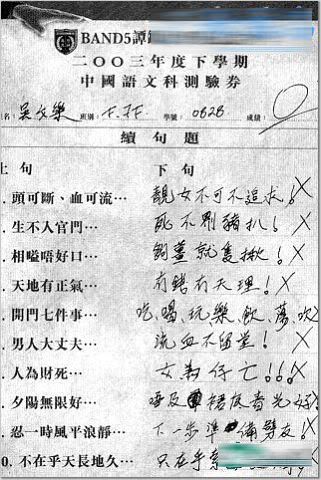 BAND5譚
二○○三年度下學期
中國語文科測驗券
名: 吳文樂 班別: F.3F. 學號: 0626 成績: 0
續句題
上句 下句
. 頭可斷、血可流… 靚女不可不追求! X
. 生不入官門… 死不剮豬扒! X
. 相嗌唔好口… 鋼薑就隻揪! X
. 天地有正氣… 有錢有天理! X
. 開門七件事… 吃、喝、玩、樂、飲、蕩、吹 X
. 男人大丈夫… 流血不留堂! X
. 人為財死… 女為仔亡!!! X
. 夕陽無限好… 唔及裙底春光好 X
. 忍一時風平浪靜… 下一步準備劈友! X
0. 不在乎天長地久… 只在乎